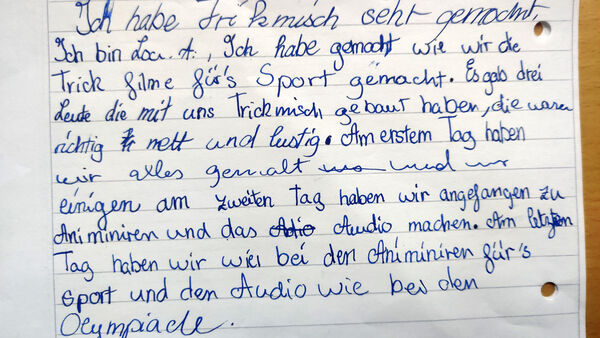 Ich habe Trickmisch sehr gemocht.
Ich bin Lou. A., Ich habe gemocht wie wir die
Trick filme für's Sport gemacht. Es gab drei
Leute die mit uns Trickmisch gebaut haben, die waren
richtig nett und lustig. Am erstem Tag haben
wir alles gemalt und
einigen am zweiten Tag haben wir angefangen zu
Animiniren und das Audio machen. Am letzten
Tag haben wir wie bei den Animiniren für's
Sport und den Audio wie bei den
Olympiade.